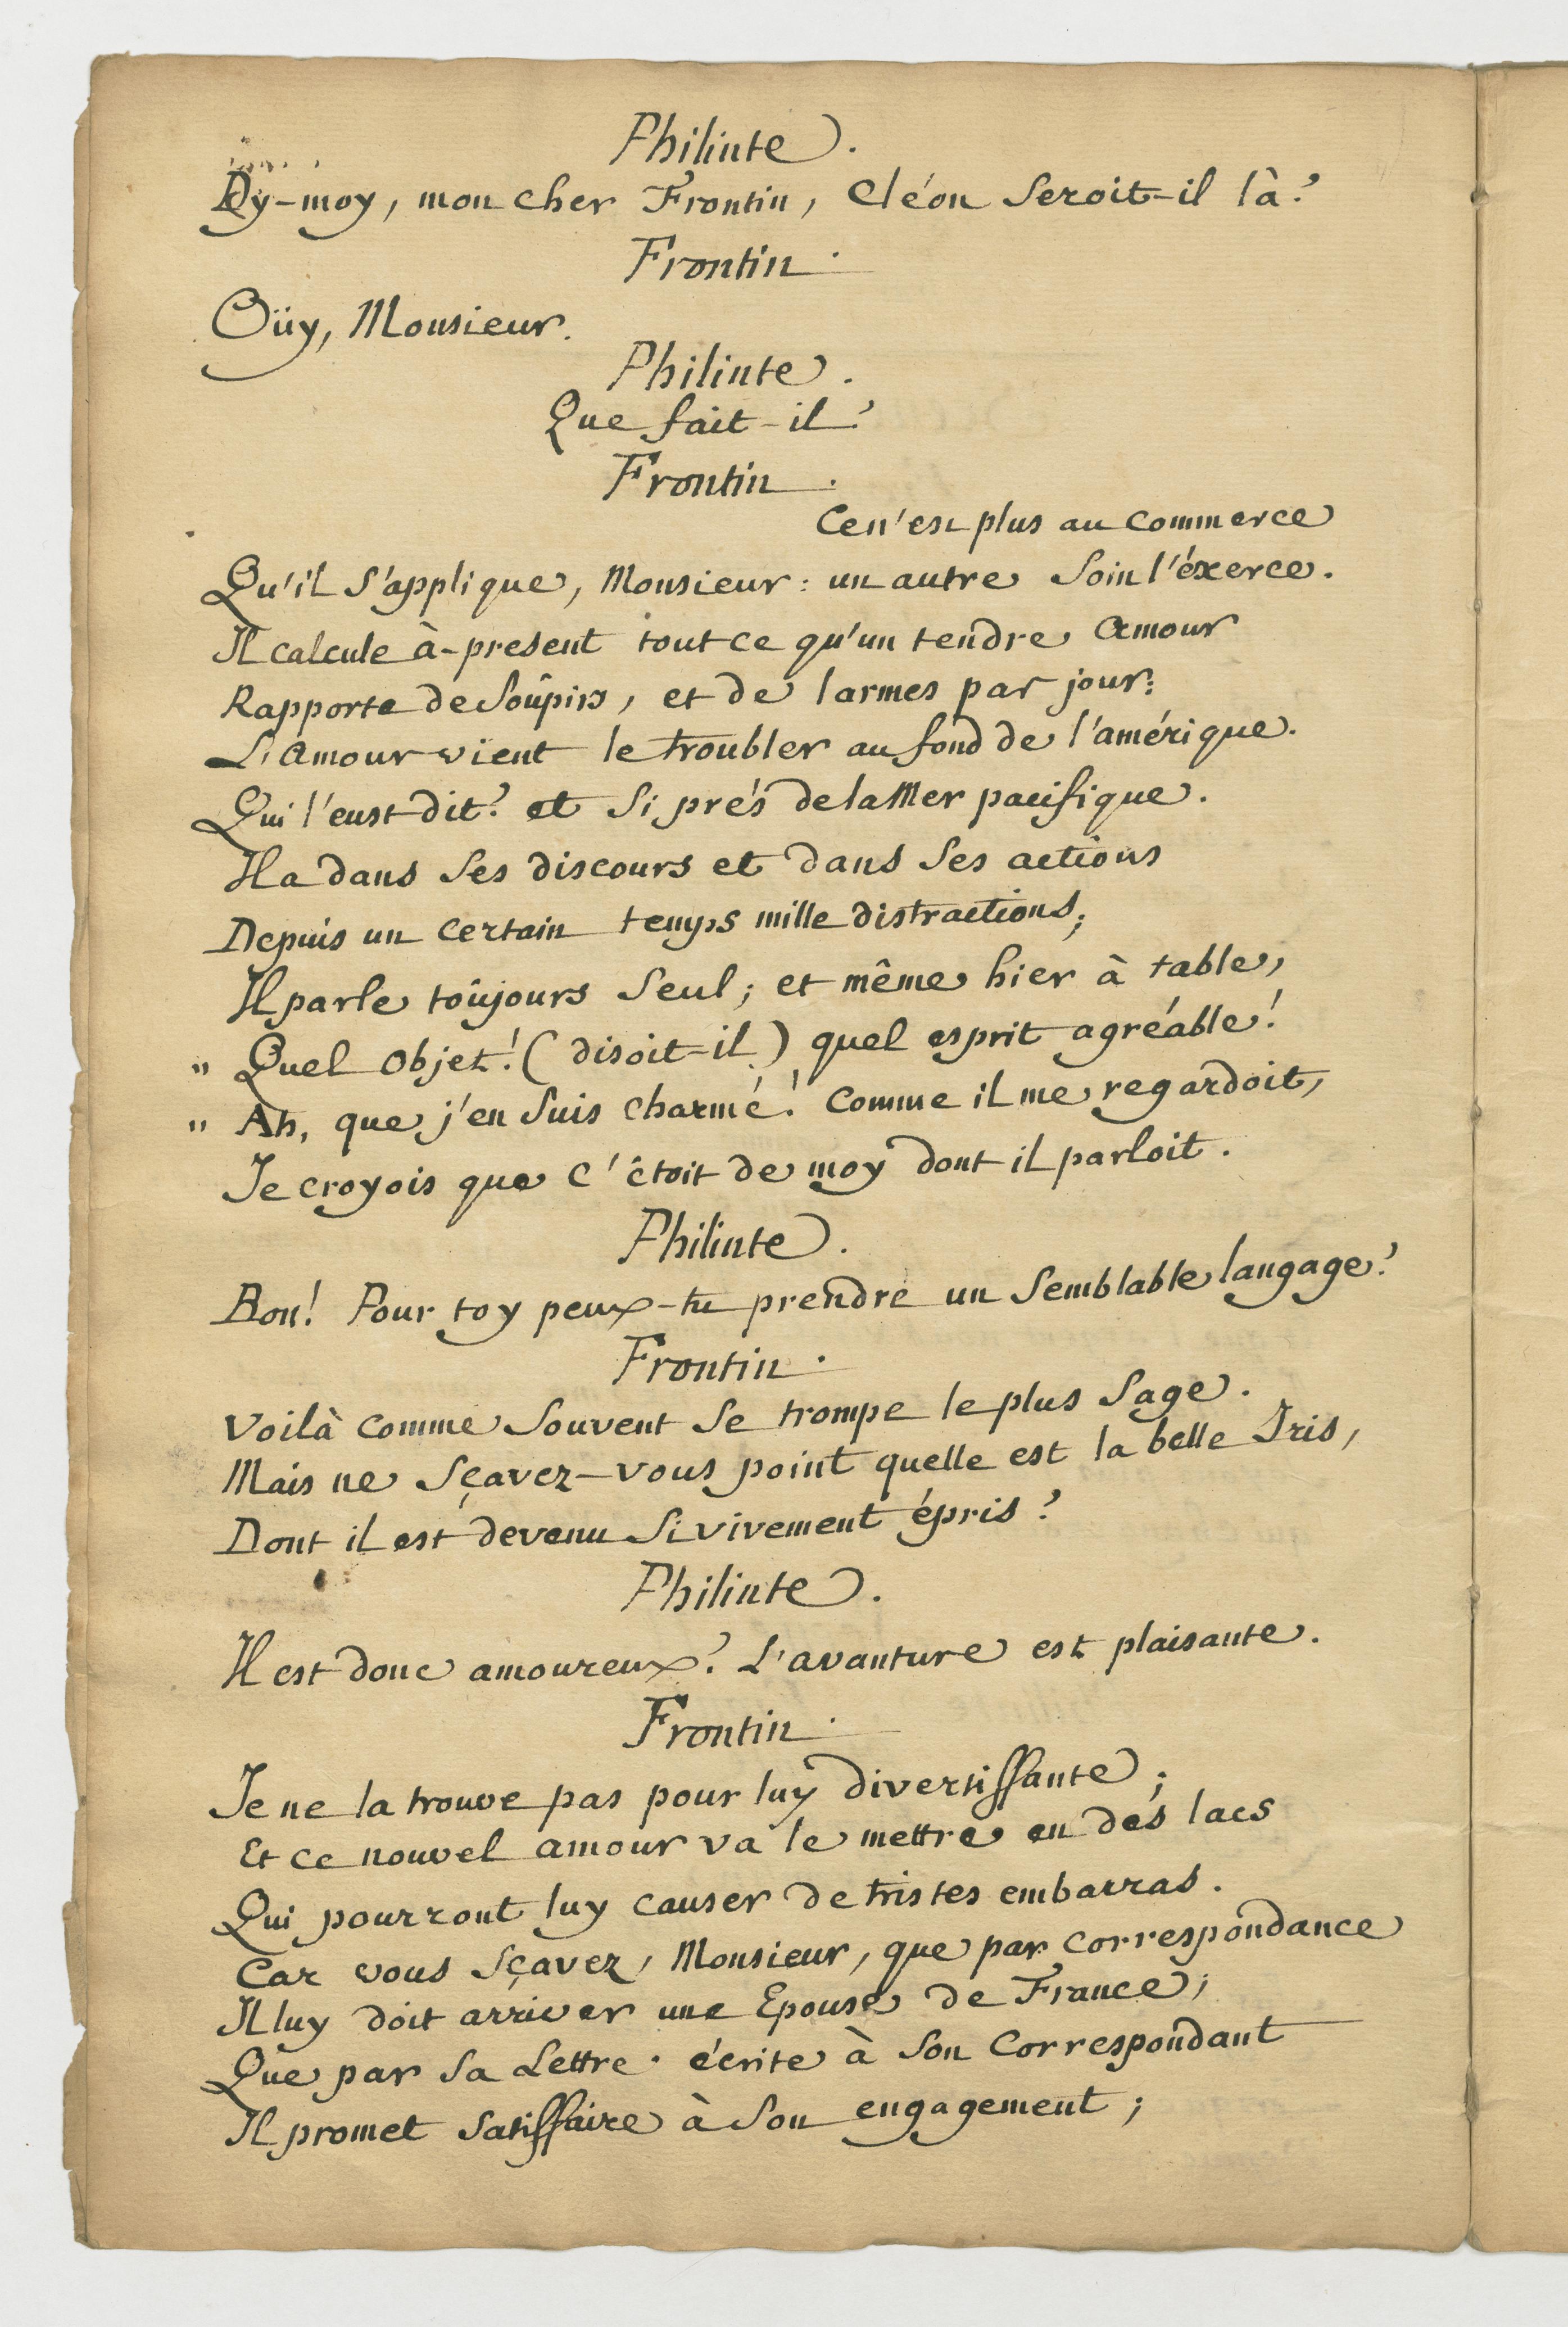 Philinte.
Dy-moy, mon cher Frontin, Cléon seroit-il là?
Frontin.
Oüy, Monsieur.
Philinte.
Que fait-il?
Frontin.
Ce n'est plus au commerce
Qu'il s'applique, Monsieur: un autre soin l'éxerce.
Il calcule à-present tout ce qu'un tendre amour
Rapporte de soûpirs, et de larmes par jour:
L'amour vient le troubler au fond de l'amérique.
Qui l'eust dit? et si prés de la Mer pacifique.
Il a dans ses discours et dans ses actions
Depuis un certain temps mille distractions;
Il parle toûjours seul; et même hier à table,
" Quel objet! (disoit-il) quel esprit agréable!
" Ah, que j'en suis charmé! Comme il me regardoit,
Je croyois que c'êtoit de moy dont il parloit.
Philinte.
Bon! Pour toy peux-tu prendre un semblable langage?
Frontin.
Voilà comme souvent se trompe le plus sage.
Mais ne sçavez-vous point quelle est la belle Iris,
Dont il est devenu si vivement épris?
Philinte.
Il est donc amoureux? L'avanture est plaisante.
Frontin.
Je ne la trouve pas pour luy divertissante;
Et ce nouvel amour va le mettre en des lacs
Qui pourront luy causer de tristes embarras.
Car vous sçavez, Monsieur, que par correspondance
Il luy doit arriver une Epouse de France;
Que par sa Lettre écrite à son Correspondant
Il promet satisfaire à son engagement;